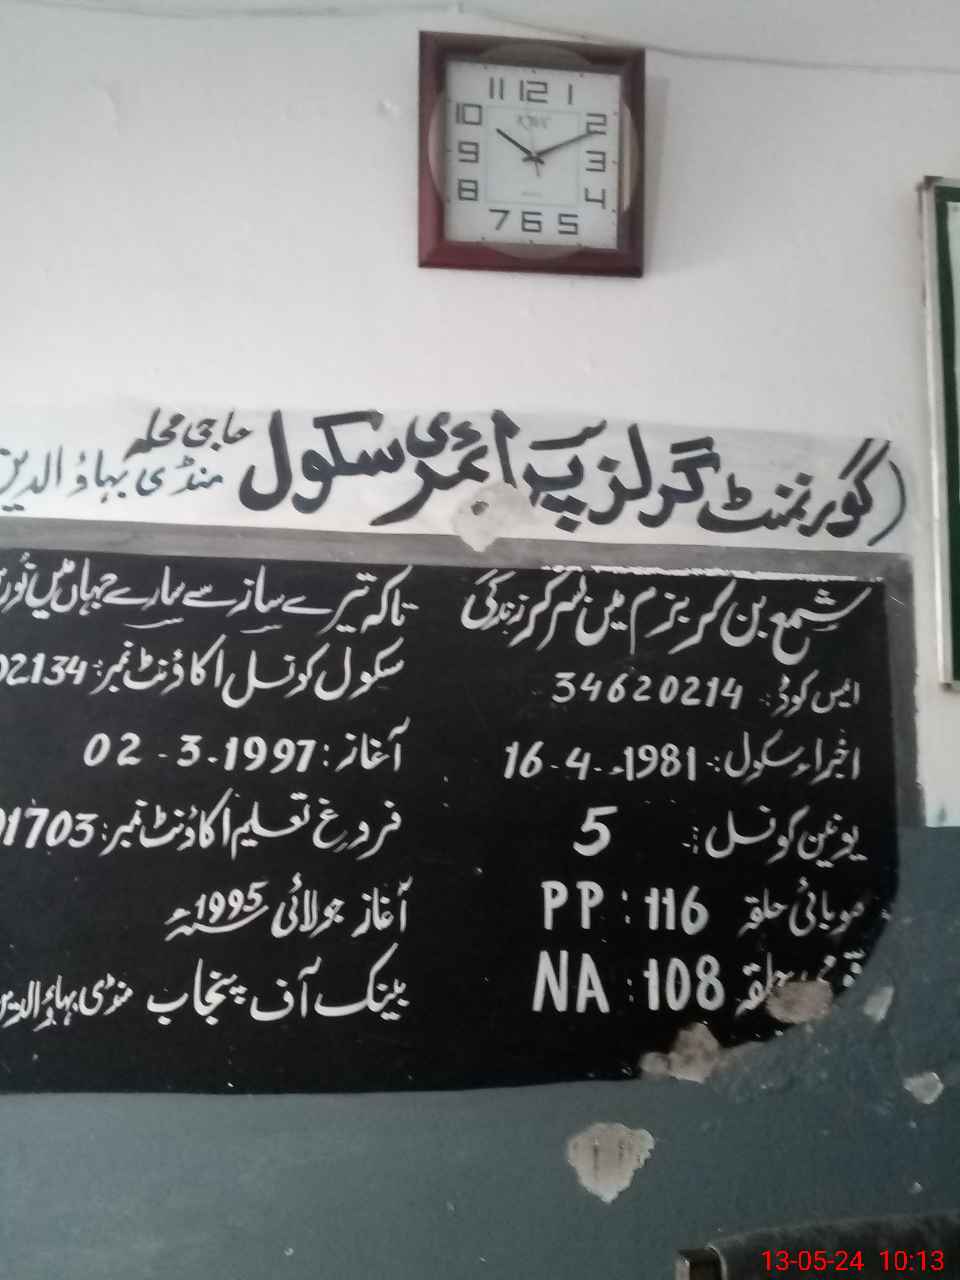 11 12 1
10 2
9 3
8 4
7 6 5
(گورنمنٹ گرلز پرائمری سکول حاجی محلہ
منڈی بہاؤالدین
شمع بن کر بزم میں نسر کر زندگی تاکہ تیرے ساز سے سارے جہاں میں نُور
ایمس کوڈ: 34620214 سکول کونسل اکاؤنٹ نمبر: 02134
اجراء سکول: 16-4-1981ء آغاز: 02-3-1997
یونین کونسل: 5 فروغِ تعلیم اکاؤنٹ نمبر: 01703
صوبائی حلقہ PP: 116 آغاز جولائی 1995ء
قومی حلقہ NA: 108 بینک آف پنجاب منڈی بہاؤالدین
13-05-24 10:13